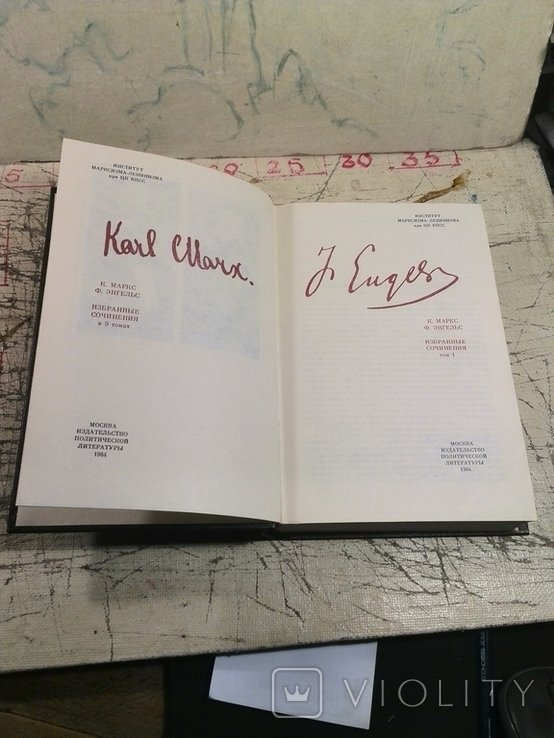 5
20 25 30 35
ИНСТИТУТ
МАРКСИЗМА-ЛЕНИНИЗМА
при ЦК КПСС
Karl Marx.
К. МАРКС
Ф. ЭНГЕЛЬС
ИЗБРАННЫЕ
СОЧИНЕНИЯ
в 9 томах
МОСКВА
ИЗДАТЕЛЬСТВО
ПОЛИТИЧЕСКОЙ
ЛИТЕРАТУРЫ
1984
ИНСТИТУТ
МАРКСИЗМА-ЛЕНИНИЗМА
при ЦК КПСС
F Engels
К. МАРКС
Ф. ЭНГЕЛЬС
ИЗБРАННЫЕ
СОЧИНЕНИЯ
том 1
МОСКВА
ИЗДАТЕЛЬСТВО
ПОЛИТИЧЕСКОЙ
ЛИТЕРАТУРЫ
1984
VIOLITY